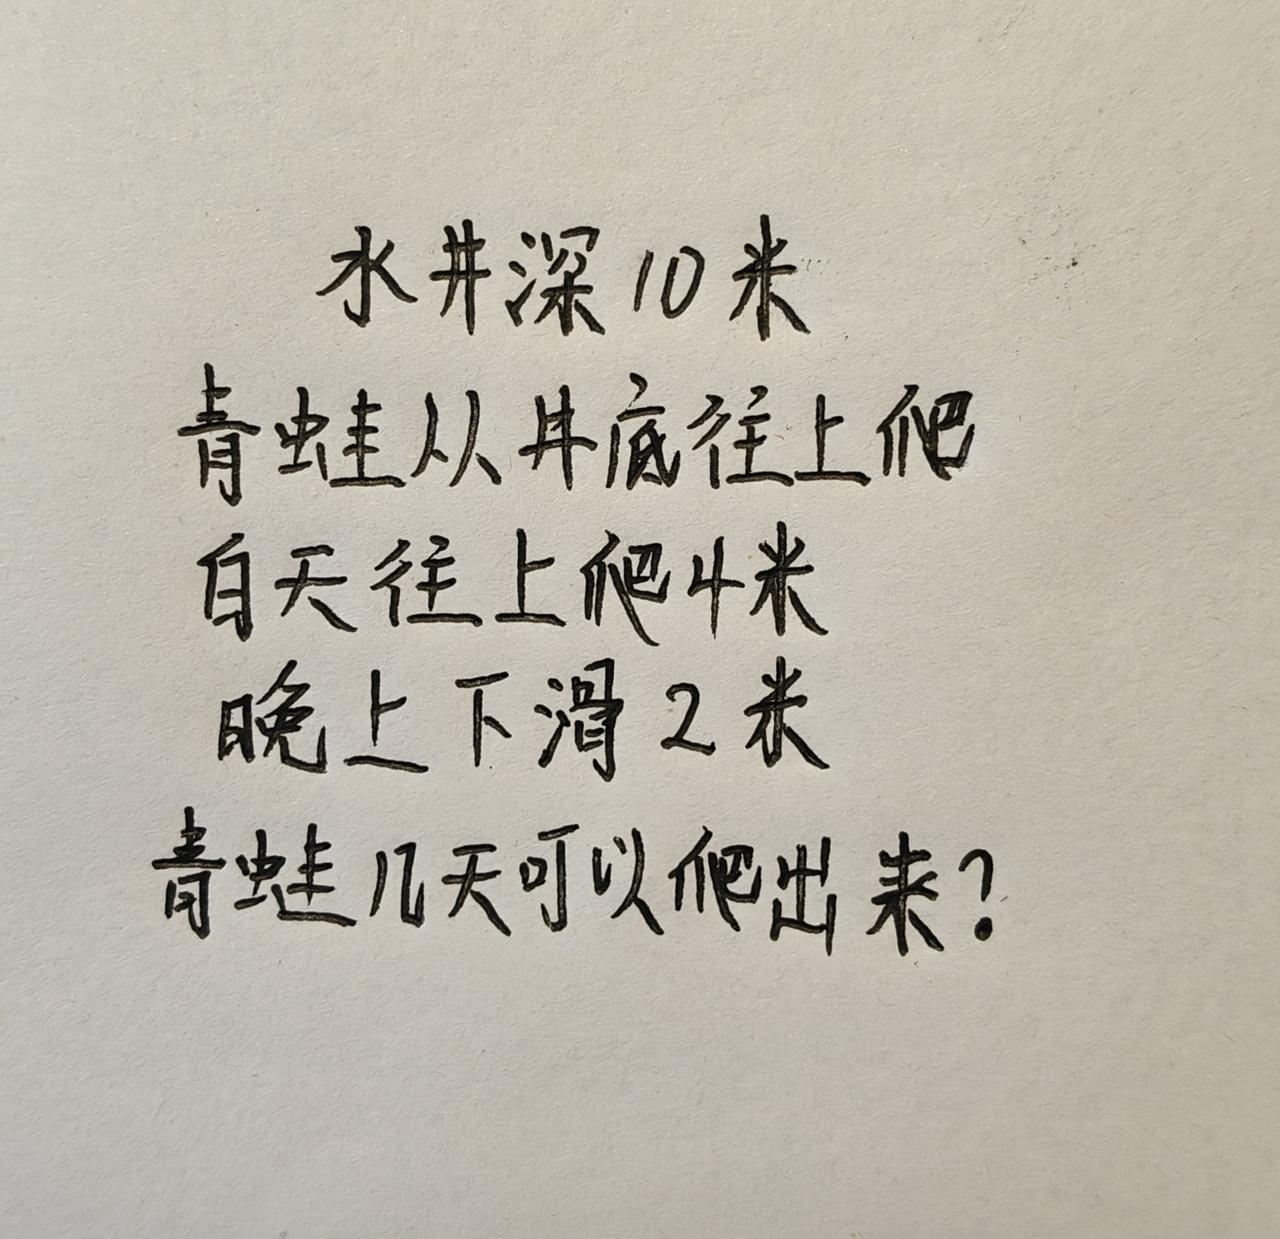 水井深10米
青蛙从井底往上爬
白天往上爬4米
晚上下滑2米
青蛙几天可以爬出来？